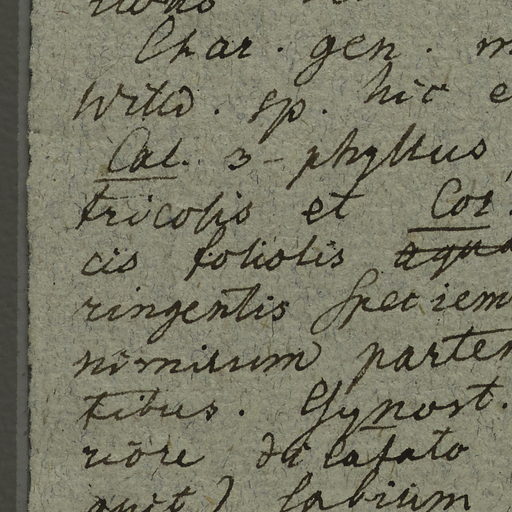 Char. gen. m
Willd. sp. hic e
Cal. 3-phyllus,
tricolis et Cor.
cis foliolis aqua
ringentis speciem
nimirum parte
tibus. Gynost.
riore
labium